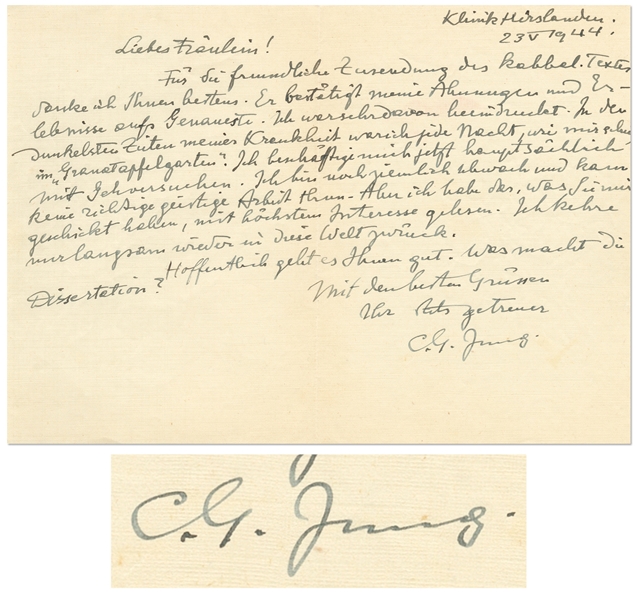 Klinik Hirslanden.
23 V 1944.
Liebes Fräulein!
Für die freundliche Zusendung des kabbal. Textes
danke ich Ihnen bestens. Er bestätigt meine Ahnungen und Er-
lebnisse aufs Genaueste. Ich war sehr davon beeindruckt. In den
dunkelsten Zeiten meiner Krankheit war ich jede Nacht, wie mir schien
im "Granatapfelgarten". Ich beschäftige mich jetzt hauptsächlich
mit Gehversuchen. Ich bin noch ziemlich schwach und kann
keine richtige geistige Arbeit thun. Aber ich habe das, was Sie mir
geschickt haben, mit höchstem Interesse gelesen. Ich kehre
nur langsam wieder in diese Welt zurück.
Hoffentlich geht es Ihnen gut. Was macht die
Dissertation?
Mit den besten Grüssen
Ihr stets getreuer
C.G. Jung.
C.G. Jung.